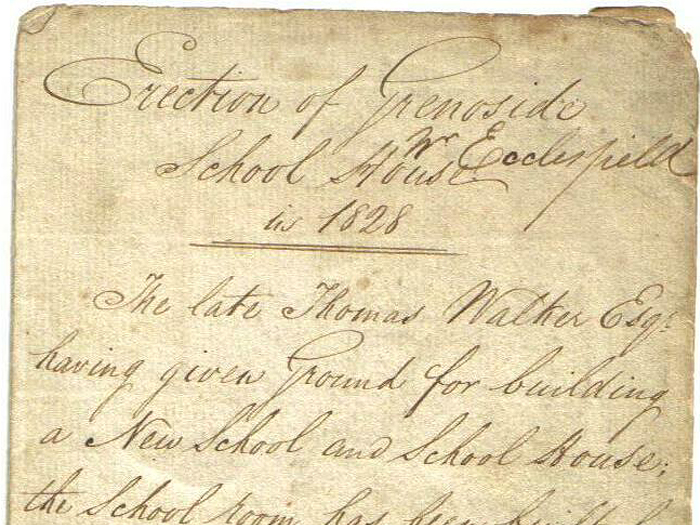 Erection of Grenoside
School House Nr Ecclesfield
in 1828
The late Thomas Walker Esqr
having given Ground for building
a New School and School House;
the School room has been built